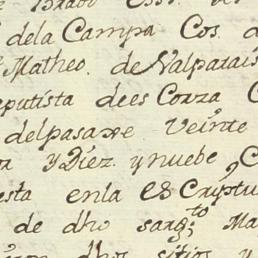 Bravo Ess.
dela Campa Cos.
Matheo. de Valparais
eputista dees Corza
delpasare Veinte
y Diez. y nuebe
esta enla esCriptu
de dho sarg.to Ma
dhos sitios y